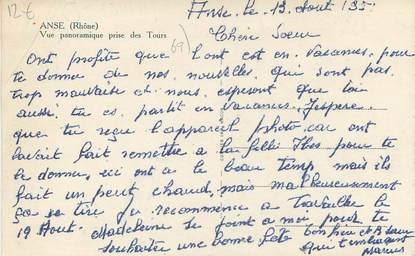 12€
Anse, le 13 Aout 135.
ANSE (Rhône)
Vue panoramique prise des Tours
69
Chère Soeur
Ont profite que l'ont est en vacances, pour
te donner de nos nouvelles qui sont pas
trop mauvaise et nous esperont que toi
aussi tu es partit en vacances, J'espère
que tu reçu l'appareil photo car ont
l'avait fait remettre a la fille pour te
le donner, ici ont a le beau temp, mais ils
fait un peut chaud, mais malheureusement
ça se tire j'y recommence a travailler le
19 Aout. Madeleine se joint a moi pour te
souhaiter une bonne fête
qui t'embrasse
Marius